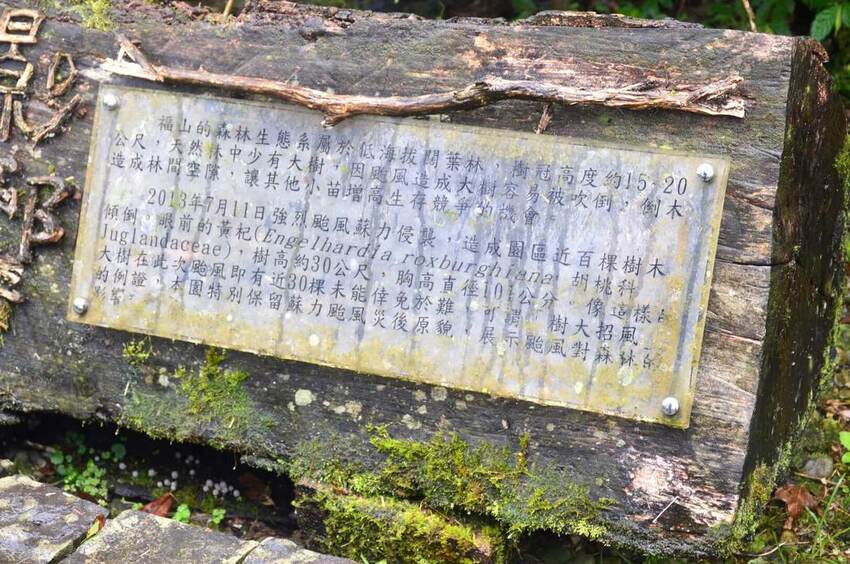 福山的森林生態系屬於低海拔闊葉林，樹冠高度約15-20
公尺，天然林中少有大樹，因颱風造成大樹容易被吹倒，倒木
造成林間空隙，讓其他小苗增高生存競爭的機會。
2013年7月11日強烈颱風蘇力侵襲，造成園區近百棵樹木
傾倒。眼前的黃杞(Engelhardia roxburghiana，胡桃科
Juglandaceae)，樹高約30公尺，胸高直徑101公分，像這樣的
大樹在此次颱風即有近30棵未能倖免於難，可謂「樹大招風」
的例證，本園特別保留蘇力颱風災後原貌，展示颱風對森林的
影響。